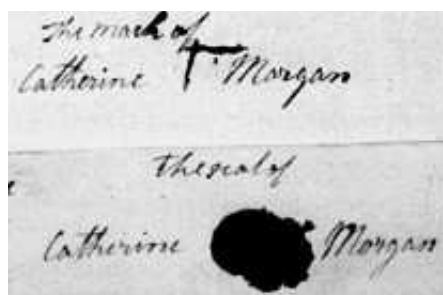 the mark of
Catherine Morgan
the seal of
Catherine Morgan